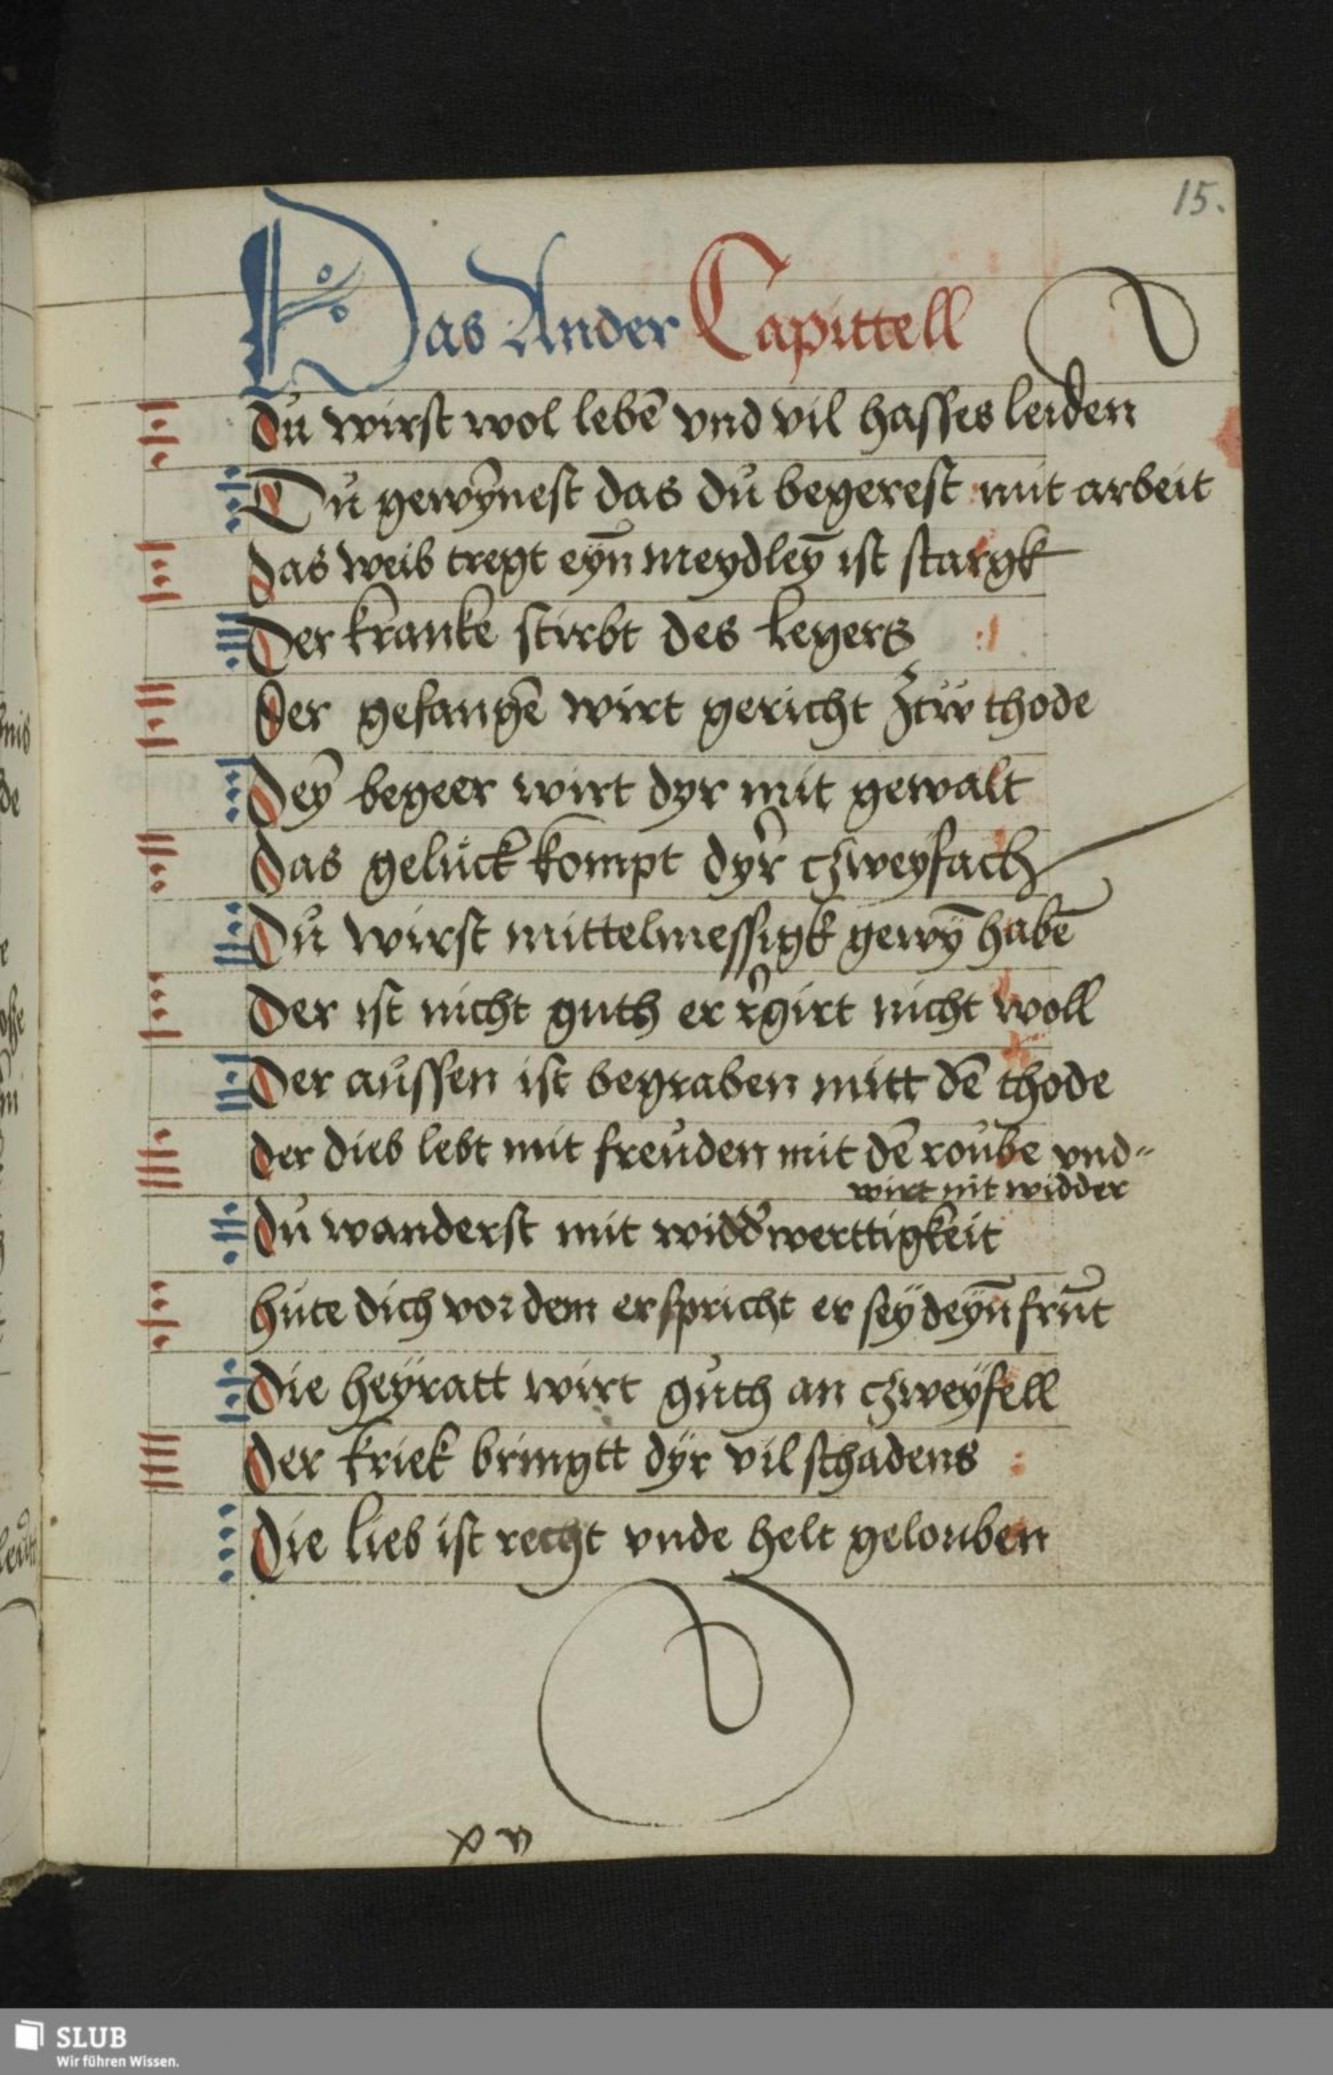 15.
Das Ander Capittell
Du wirst wol lebē vnd vil hasses leiden
Du gewȳnest das du begerest mit arbeit
Das weib tregt eyn̄ meydleȳ ist stargk
Der kranke stirbt des legers
Der gefangē wirt gericht Ztẅ thode
Deȳ begeer wirt dyr mit gewalt
Das gelück kompt dyr czweyfach
Du wirst mittelmessigk gewȳ habē
Der ist nicht guth er rgirt nicht woll
Der aussen ist begraben mitt dē thode
der dieb lebt mit freuden mit dē roube vnd
wirt nit widder
du wanderst mit widdwerttigkeit
hute dich vor dem er spricht er seÿ deyn̄ frut
die heÿratt wirt guth an czweÿfell
Der kriek bringtt dÿr vil schadens
Die lieb ist recht vnde helt gelouben
SLUB
Wir führen Wissen.